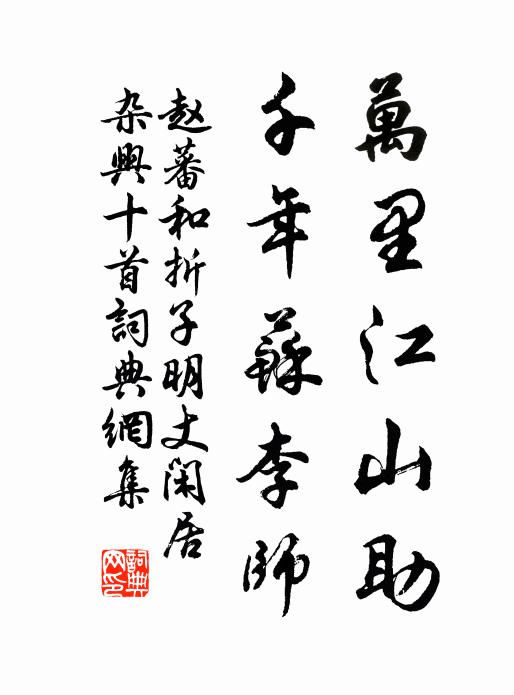 萬里江山助
千年蘇李師
赵蕃和折子明丈闲居
杂興十首詞典網集
詞典网印